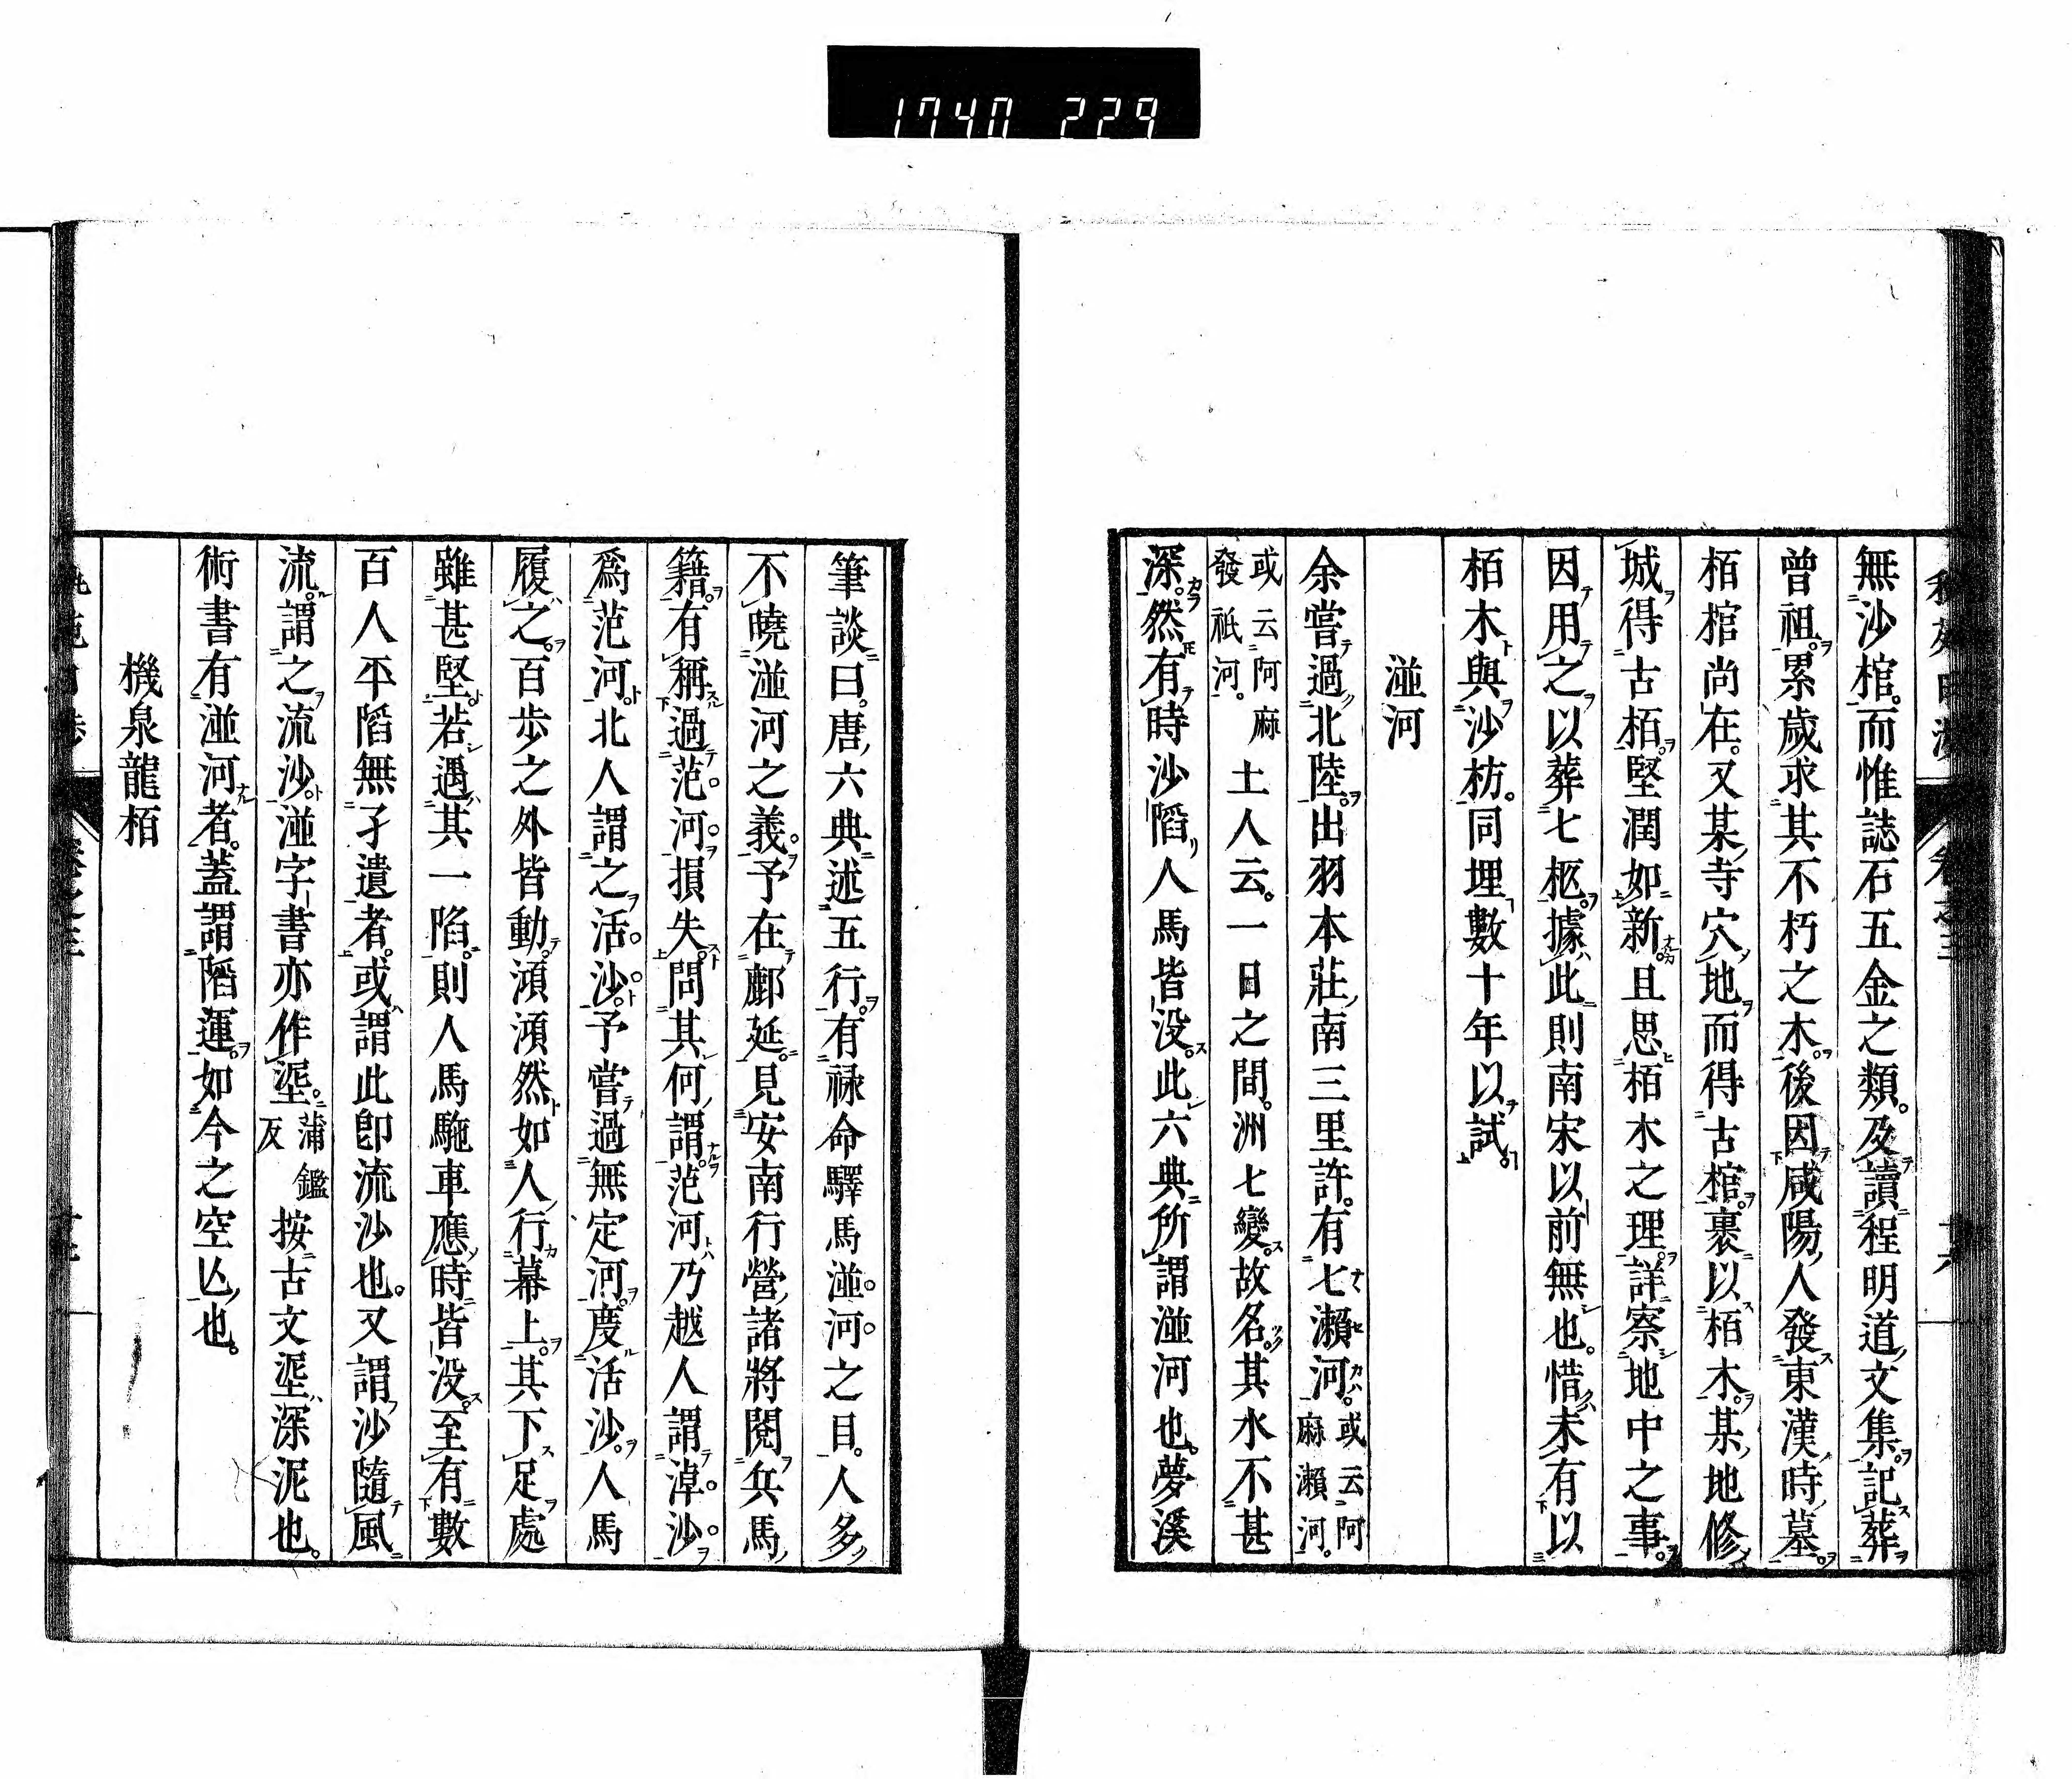 1740 229
無沙棺。而惟誌石五金之類。及讀程明道文集。記葬
曾祖。累歲求其不朽之木。後因咸陽人發東漢時墓。
栢棺尚在。又某寺穴地而得古棺。裹以栢木。某地修
城得古栢。堅潤如新。且思栢木之理。詳察地中之事。
因用之以葬七柩。據此則南宋以前無也。惜未有以
栢木與沙枋。同埋數十年以試。
湴河
余嘗過北陸。出羽本莊南三里許。有七瀨河。或云阿麻瀨河。
或云阿麻發祇河。土人云。一日之間。洲七變。故名。其水不甚
深。然有時沙陷。人馬皆没。此六典所謂湴河也。夢溪
筆談曰。唐六典述五行。有禄命驛馬湴河之目。人多
不曉湴河之義。予在鄜延。見安南行營諸將閱兵馬
籍。有稱過范河損失。問其何謂范河。乃越人謂淖沙
爲范河。北人謂之活沙。予嘗過無定河。度活沙。人馬
履之。百歩之外皆動。澒澒然如人行幕上。其下足處
雖甚堅。若遇其一陷。則人馬駞車應時皆没。至有數
百人平陷無孑遺者。或謂此卽流沙也。又謂沙隨風
流。謂之流沙。湴字書亦作埿。蒲鑑反 按古文埿深泥也。
術書有湴河者。蓋謂陷運。如今之空亾也。
機泉龍栢